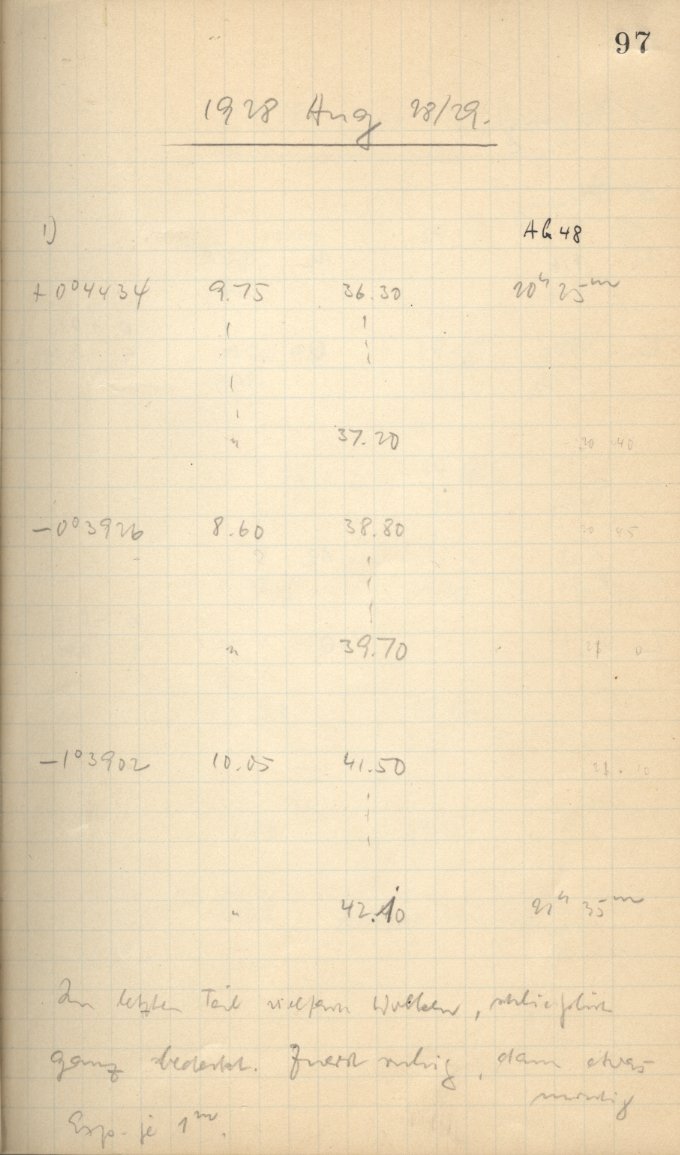 97
1928 Aug 28/29.
1) Ab 48
+0°4434 9.75 36.30 20h 25m
" 37.20 20 40
-0°3926 8.60 38.80 20 45
" 39.70 21 0
-1°3902 10.05 41.50 21 10
" 42.10 21h 35m
Im letzten Teil vielfach Wolken, schließlich
ganz bedeckt. Zuerst ruhig, dann etwas
unruhig
Exp. je 1m.